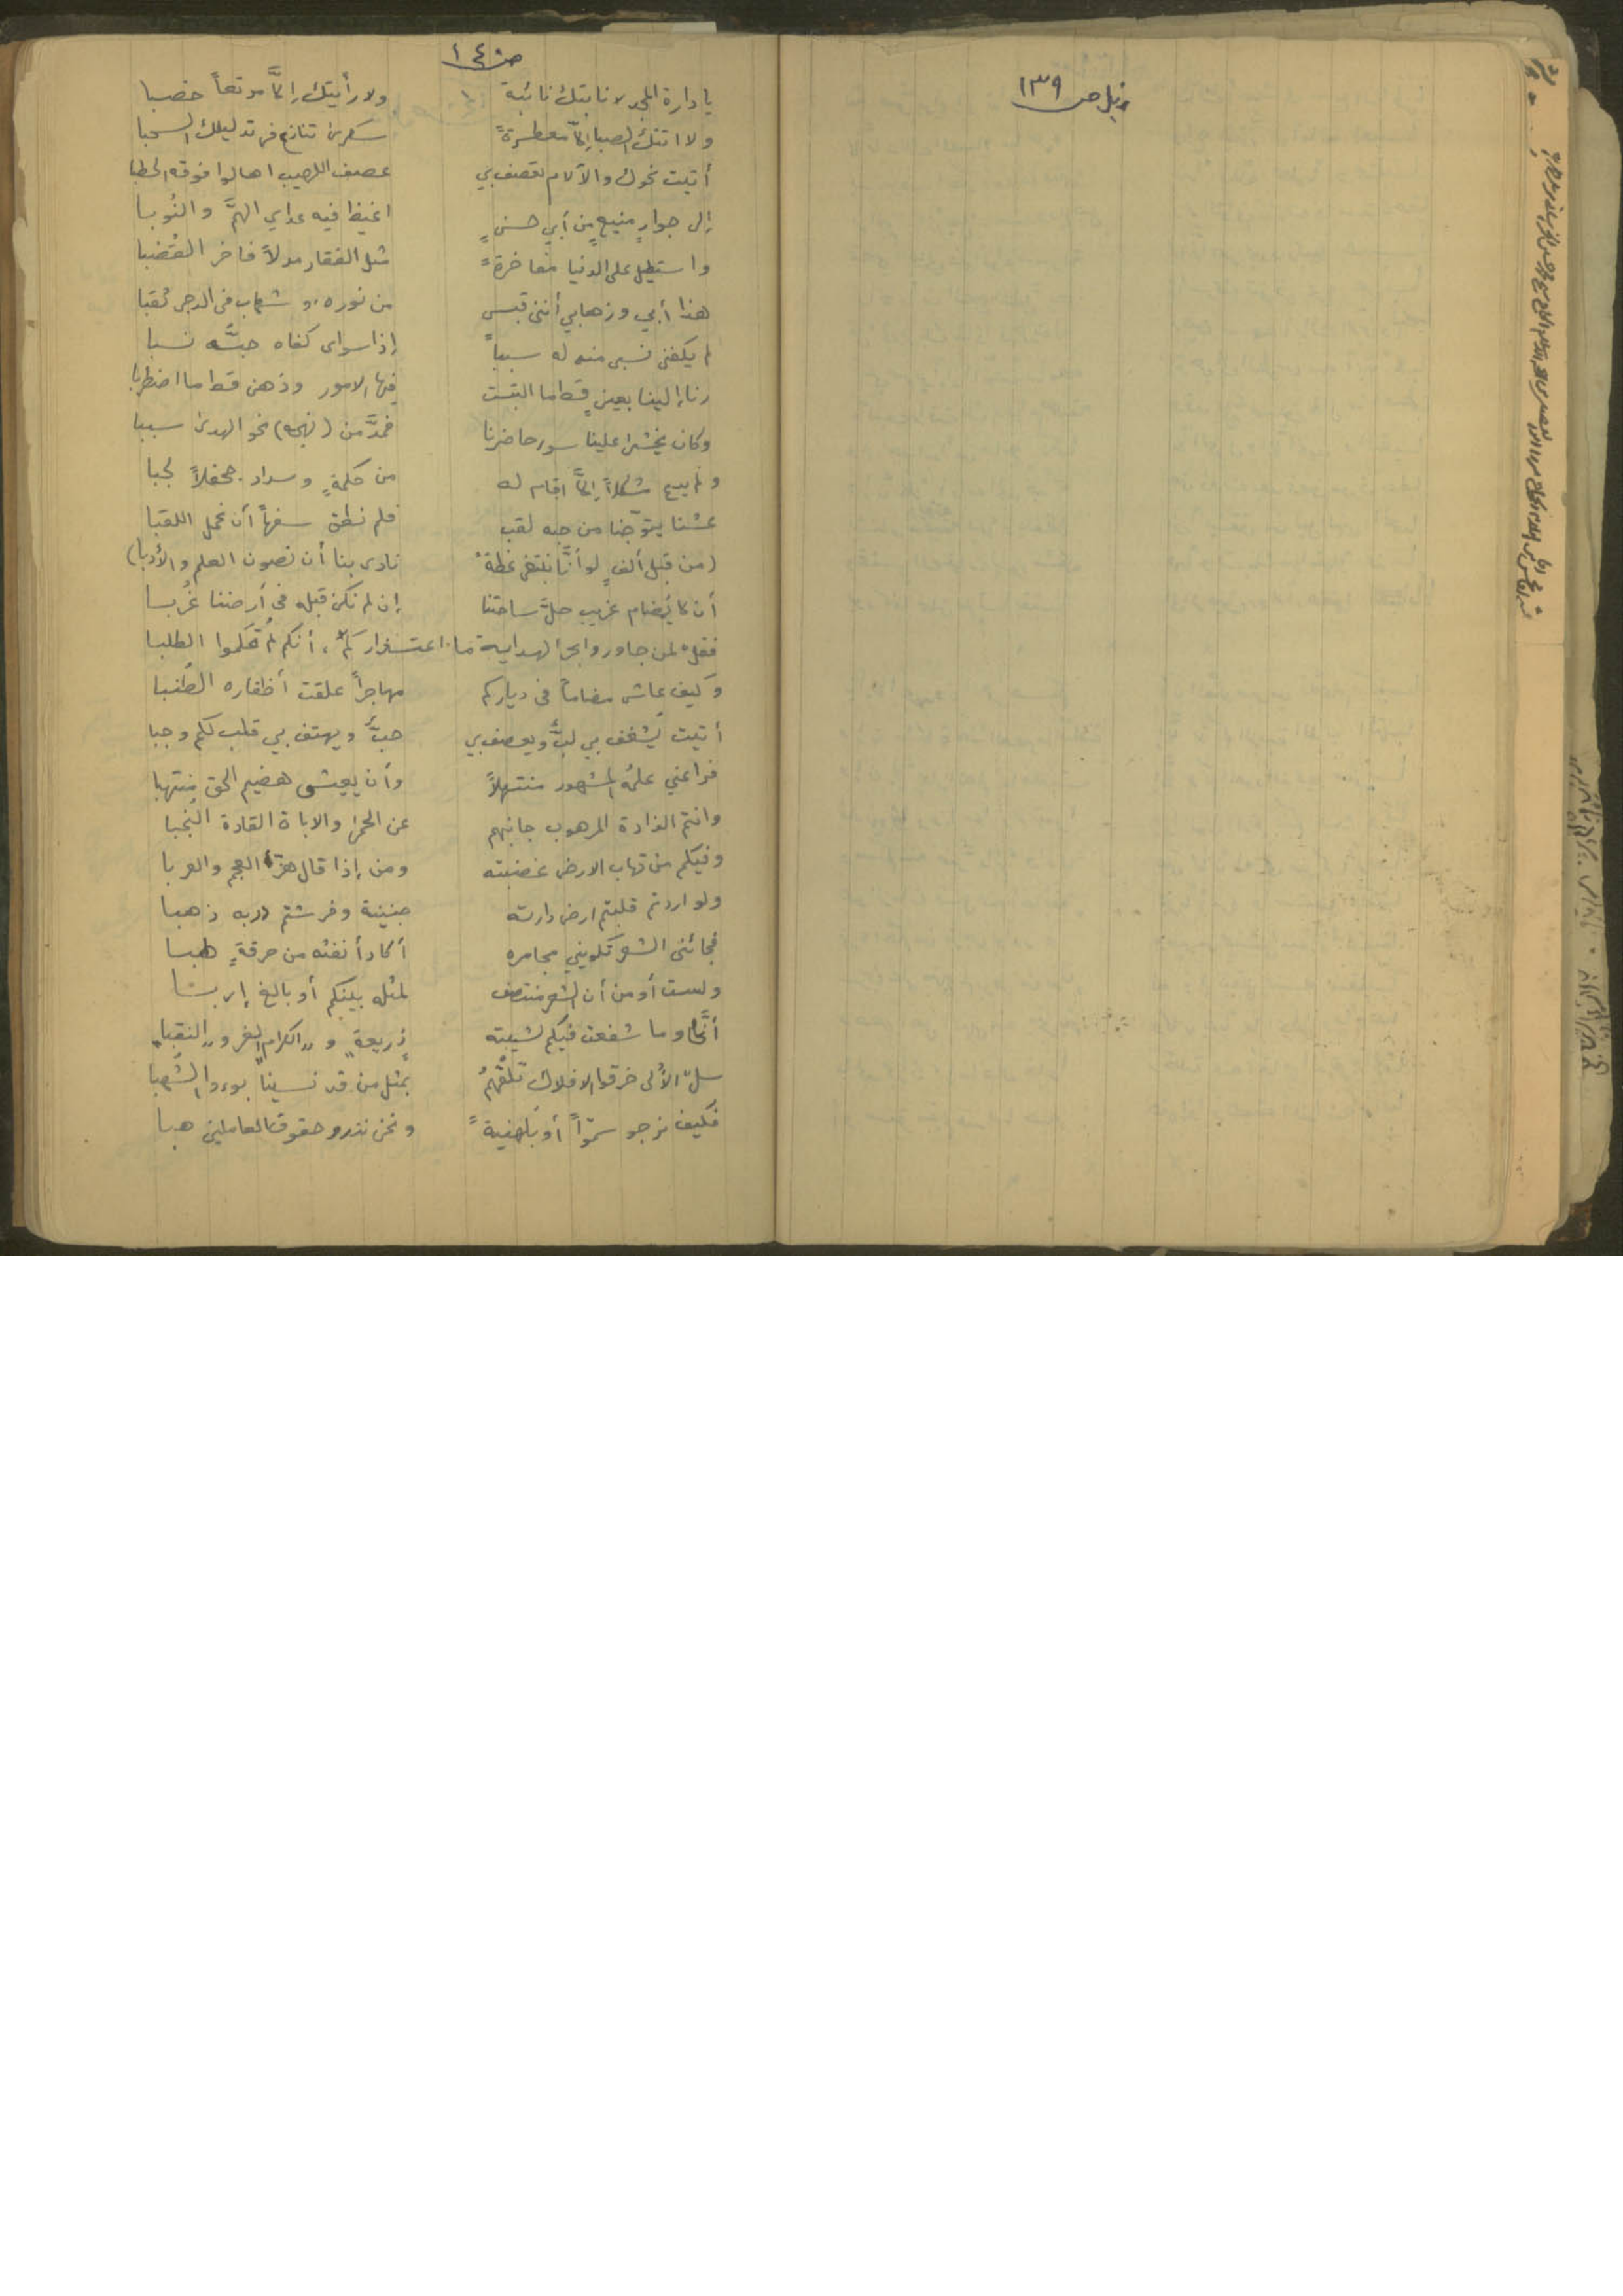 ذيل ص ١٣٩
ص ١٤٠
يا دارة المجد لا نابتك نائبة ولا رأيتك إلاَّ مرتعاً خصبا
ولا اتتك الصبا إلاَّ معطرةً سكرى تنازع في تدليلك السحبا
أتيت نحوك والآلام تقصف بي عصف اللهيب اهالوا فوقه الحطبا
إلى جوارٍ منيعٍ من أبي حسنٍ اغيظ فيه عداي الهمَّ والنُوبا
واستطيل على الدنيا مفاخرةً مثل الفقار مدلاً فاخر القُضبا
هذا أبي وزها بي أنني قبس من نوره، وشهاب في الدجى ثقبا
لم يكفني نسبي منه له سبباً إذا سواي كفاه حبُّه نسبا
رنا إلينا بعينٍ قط ما التبست فيها الامور وذهن قط ما اضطربا
وكان يخشى علينا سور حاضرنا فمدَّ من (نهجه) نحو الهدى سببا
ولم يدع مشكلاً إلاَّ اقام له من حكمةٍ وسداد جحفلاً لجبا
عشنا يتوّجنا من حبه لقب فلم نطق سفهاً أن نحمل اللقبا
(من قبل ألفٍ لو أنَّا نبتغي عظةً نادى بنا أن نصون العلم والأدبا)
أن لا يُضام غريب حلَّ ساحتنا إن لم نكن قبله في أرضنا غُربا
فقل لمن جاوروا بحر الهداية ما اعتذاركم، أنكم لم تُحكموا الطلبا
وكيف عاش مضاماً في دياركم مهاجراً علقت أظفاره الطُنبا
أتيت يُشغف بي لبٌّ ويعصف بي حبٌّ ويهتف بي قلب لكم وجبا
فراعني علمُه المشهور منتهلاً وأن يعيش هضيم الحق منتهبا
وانتم الذادة المرهوب جانبهم عن الحمى والاباة القادة النُجبا
وفيكم من تهاب الارض غضبته ومن إذا قال هزَّ العجم والعربا
ولو اردتم قلبتم ارض دارته جنينة وفرشتم دربه ذهبا
فجائني الشعر تكويني مجامره أكاد أنفثه من حرقةٍ لهبا
ولست أومن أن الشعر منتصف لمثله بينكم أو بالغ إربا
أنَّى وما شفعت فيكم لشيبته ذريعة و "الكرام الغر" و "النقبا"
سل الأُلى خرقوا الافلاك تلْقَهُمُ بمثل من قد نسينا بوءوا الشُهبا
فكيف نرجو سموّاً أو بُلهنيةً ونحن نذرو حقوق العاملين هبا